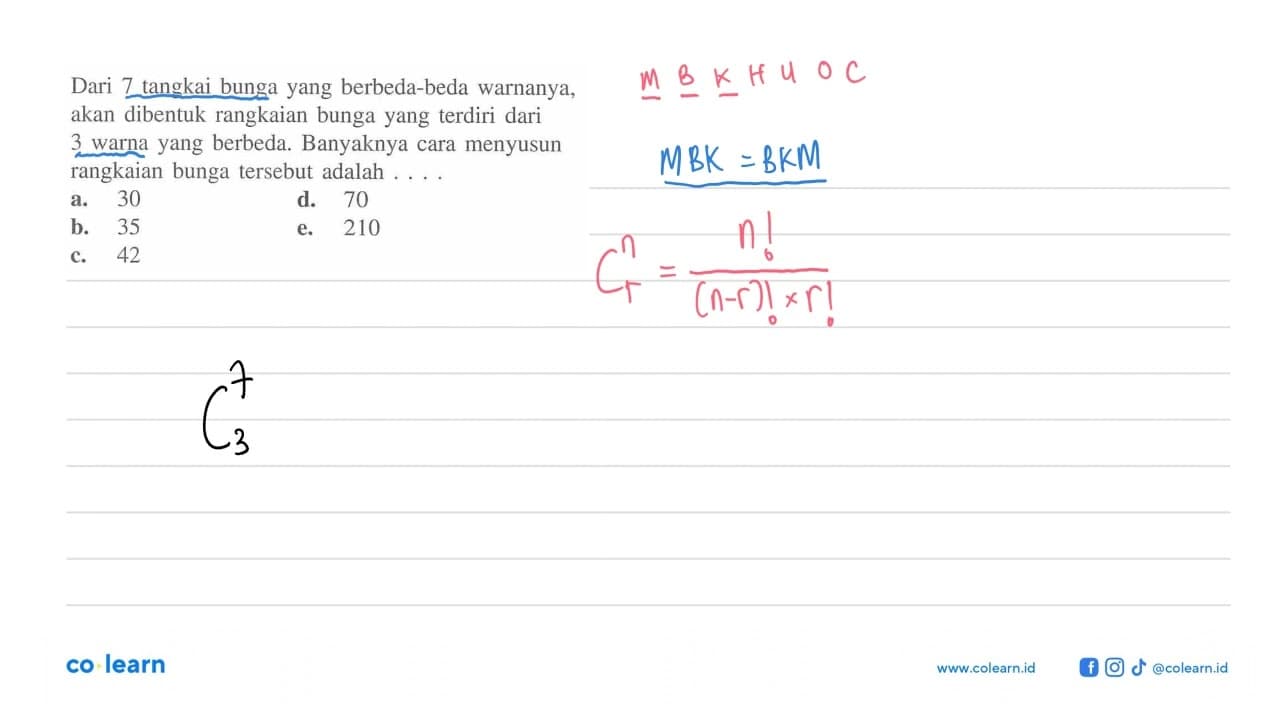 Dari 7 tangkai bunga yang berbeda-beda warnanya,
akan dibentuk rangkaian bunga yang terdiri dari
3 warna yang berbeda. Banyaknya cara menyusun
rangkaian bunga tersebut adalah . . . .
a. 30 d. 70
b. 35 e. 210
c. 42
M B K H U O C
MBK = BKM
C^n_r = n! / (n-r)! × r!
C^7_3
co·learn
www.colearn.id @colearn.id